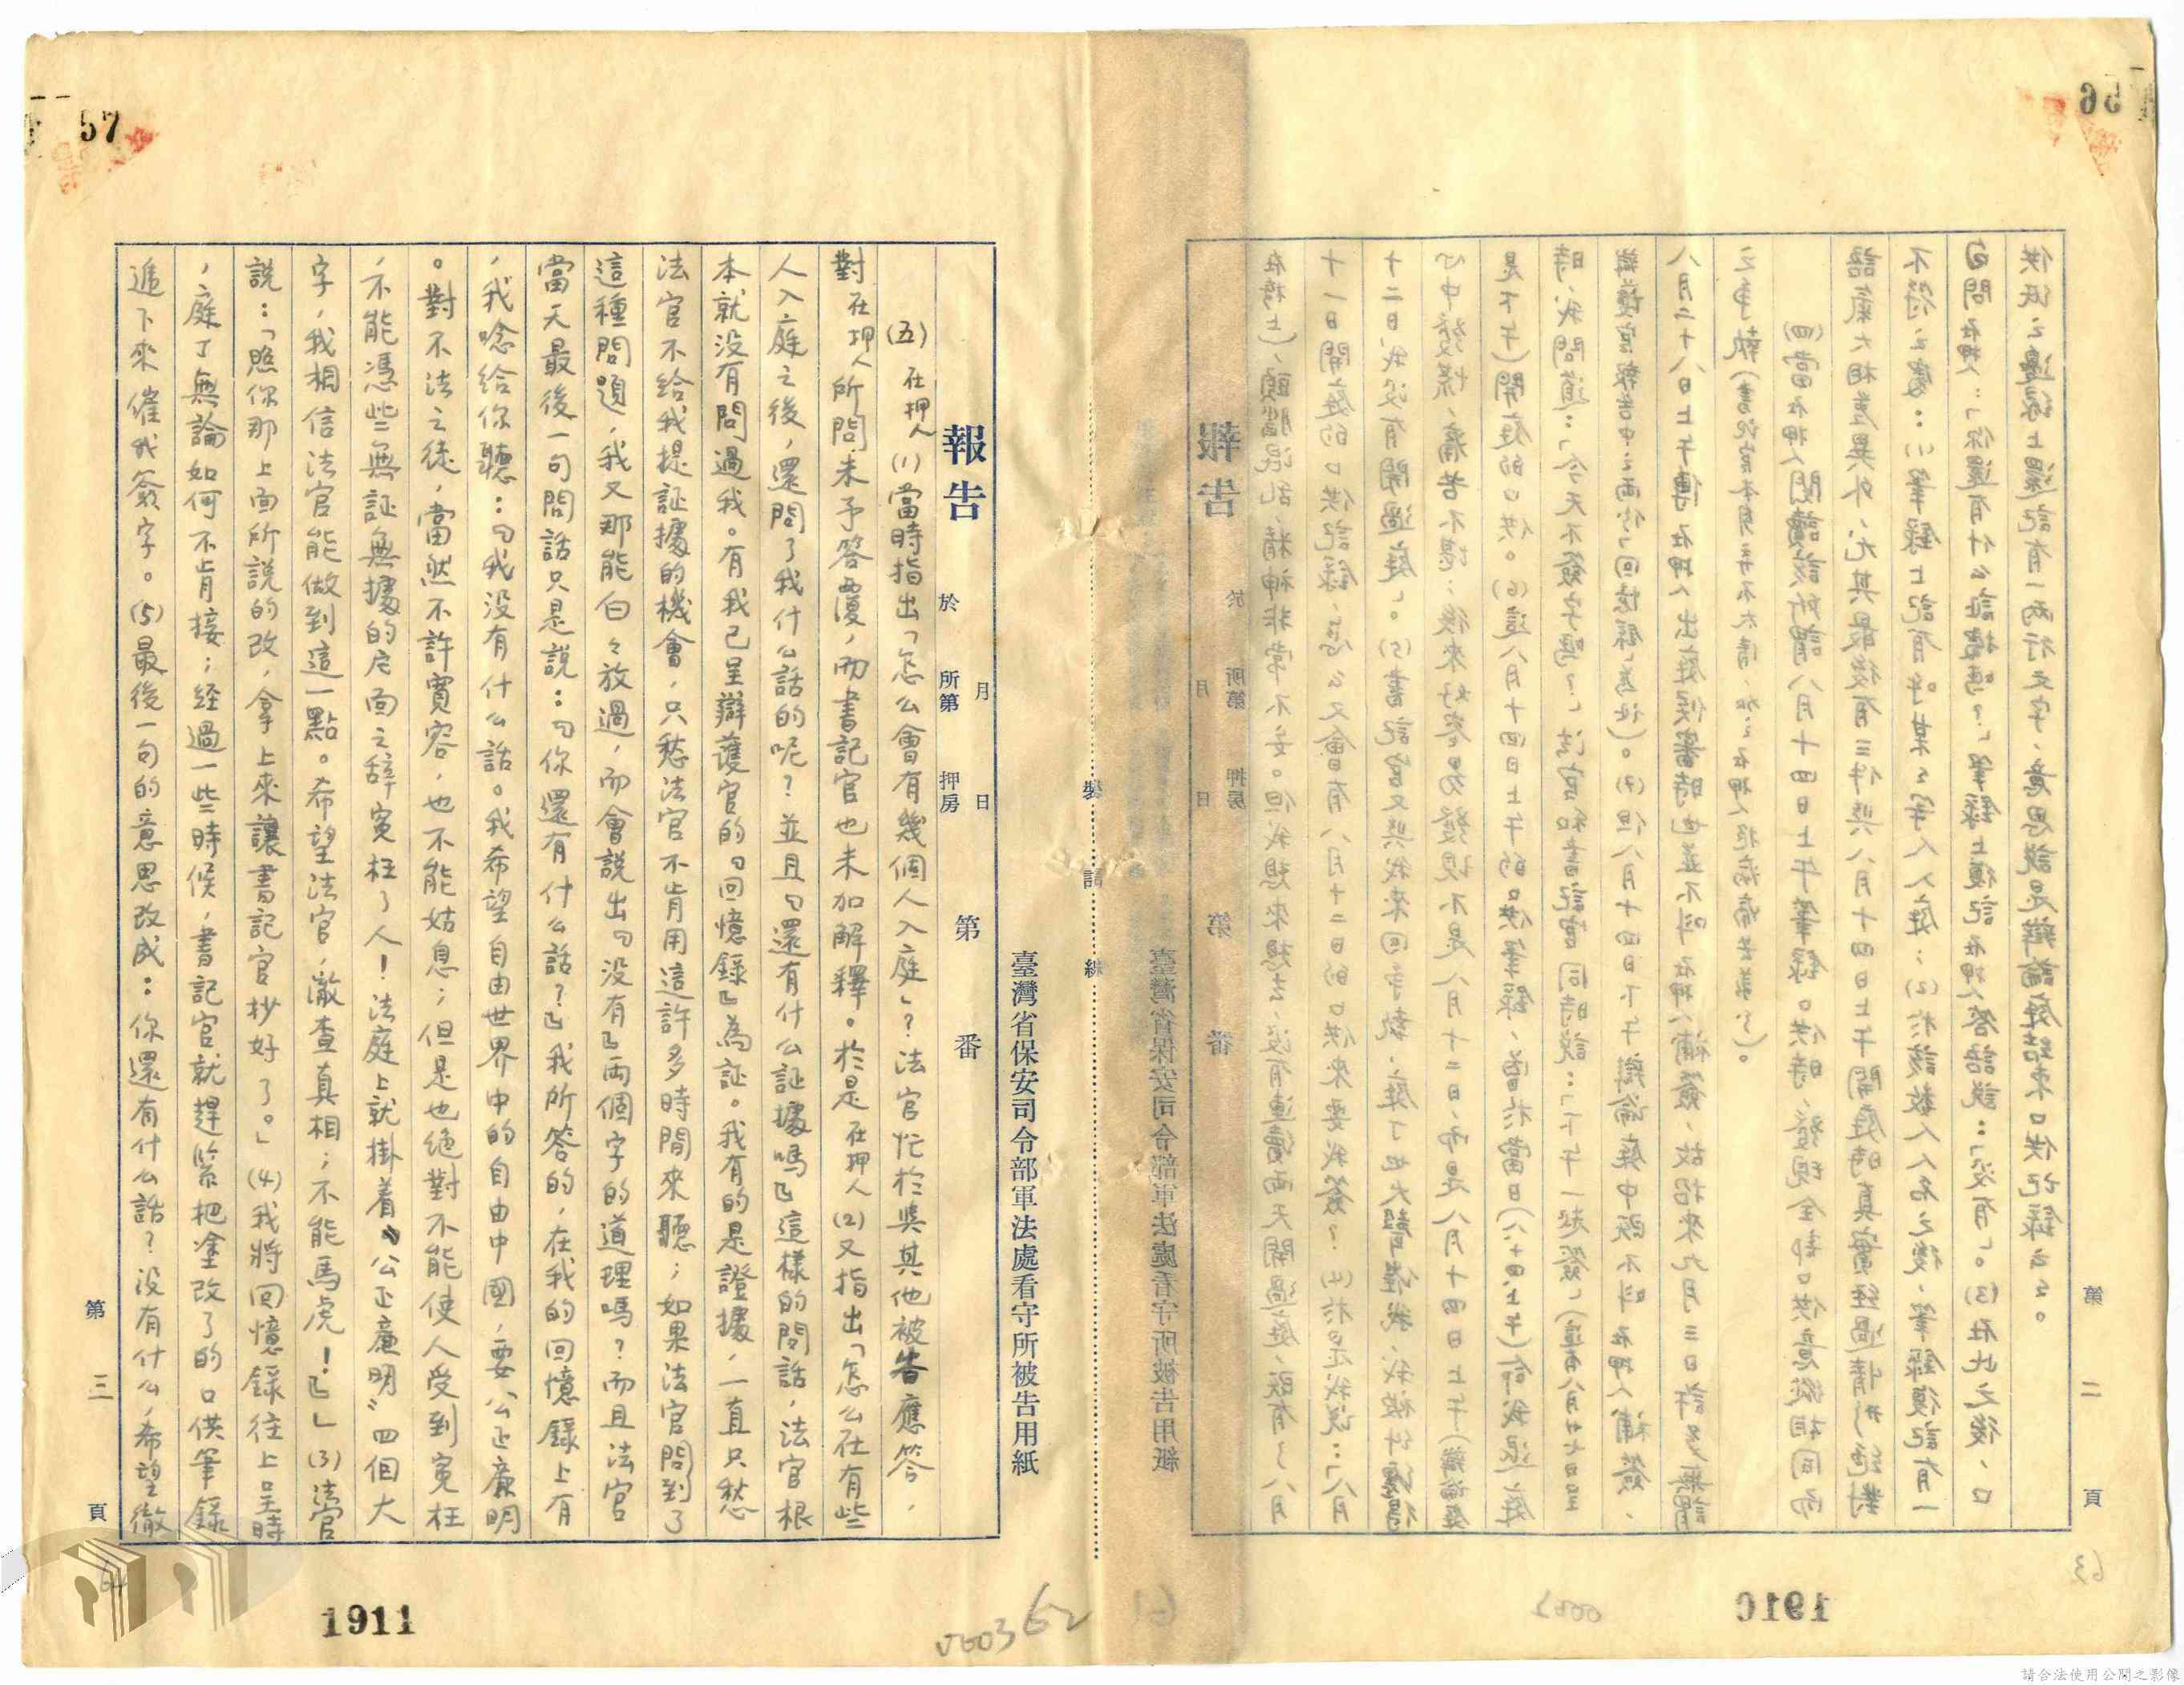 56
報告
於 所第 押房
月 日
第 番
臺灣省保安司令部軍法處看守所被告用紙
在樓上)，頭腦混乱，精神非常不安。但我想來想去，没有連續兩天開過庭，既有了八月
十一日開庭的口供記錄，怎么又會有八月十二日的口供來要我簽？(4)於是我說：「八月
十二日，我没有開過庭」。(5)書記官又與我來回爭執，庭丁也大聲催我，我被
心中發慌，痛苦不堪：後來好容易發現不是八月十二日，而是八月十四日上午(辯論庭
是下午)開庭的口供。(6)這八月十四日上午的口供筆錄，當於當日(八、十四、上午)命我退庭
時，我問道：「今天不簽字嗎？」法官和書記官同時說：「下午一起簽」
辯護官報告中之兩份「回憶錄」為证)。(7)但八月十四日下午辯論庭中既不叫在押人補簽，
八月二十八日上午傳在押人出庭候審時也並不叫在押人補簽，故招來九月三日許多無謂
之爭執(書記官本身弄不大清，加之在押人抱病痛苦萬分)。
(四)當在押人閱讀該所謂八月十四日上午筆錄口供時，發現全部口供意緒相同而
語氣大相差異外，尤其最後有三件與八月十四日上午開庭時真實經過情形絕對
不符之處：(1)筆錄上記有叫某么等人入庭；(2)於該数人人名之後，筆錄復記有一
句問在押人：「你還有什么証據嗎？」筆錄上復記在押人答語說：「没有」。(3)在此之後，口
供紙之邊緣上還記有一兩行文字，意思說是辯論庭結束口供記錄云云。
第二頁
63
1910
裝 訂 線
57
臺灣省保安司令部軍法處看守所被告用紙
報告
於 所第 押房
月 日
第 番
(五)在押人(1)當時指出「怎么會有幾個人入庭」？法官忙於與其他被告應答，
對在押人所問未予答覆，而書記官也未加解釋。於是在押人(2)又指出「怎么在有些
人入庭之後，還問了我什么話的呢？並且『還有什么証據嗎』這樣的問話，法官根
本就没有問過我。有我已呈辯護官的『回憶錄』為証。我有的是證據，一直只愁
法官不給我提証據的機會，只愁法官不肯用這許多時間來聽；如果法官問到了
這種問題，我又那能白々放過，而會說出『没有』兩個字的道理嗎？而且法官
當天最後一句問話只是說：『你還有什么話？』我所答的，在我的回憶錄上有
，我唸給你聽：『我没有什么話。我希望自由世界中的自由中國，要公正廉明
。對不法之徒，當然不許寬容，也不能姑息；但是也絕對不能使人受到寃枉
，不能憑些無証無據的片面之辞寃枉了人！法庭上就掛着〝公正廉明〞四個大
字，我相信法官能做到這一點。希望法官，澈查真相；不能馬虎！』」(3)法官
說：「照你那上面所說的改，拿上來讓書記官抄好了。」(4)我將回憶錄往上呈時
，庭丁無論如何不肯接；经過一些時候，書記官就趕緊把塗改了的口供筆錄
遞下來催我簽字。(5)最後一句的意思改成：你還有什么話？没有什么，希望徹
第三頁
64
1911
62
請合法使用公開之影像